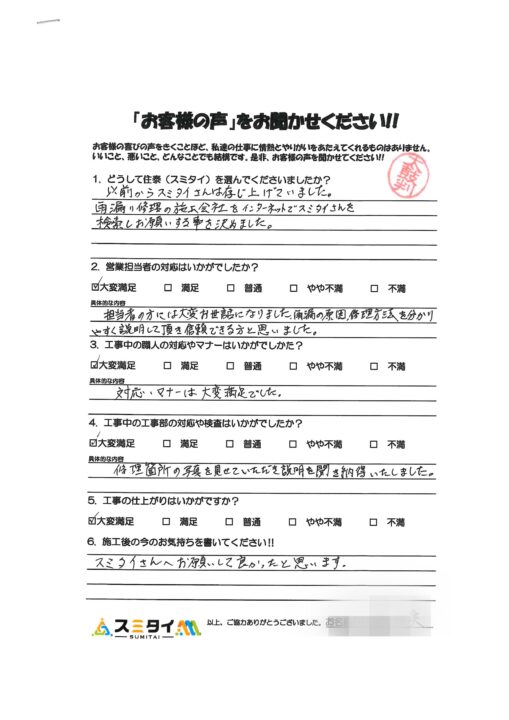 「お客様の声」をお聞かせください!!
お客様の喜びの声をきくことほど、私達の仕事に情熱とやりがいをあたえてくれるものはありません。
いいこと、悪いこと、どんなことでも結構です。是非、お客様の声を聞かせてください!!
太鼓判
1. どうして住泰（スミタイ）を選んでくださいましたか？
以前からスミタイさんは存じ上げていました。
雨漏り修理の施工会社をインターネットでスミタイさんを
検索しお願いする事を決めました。
2. 営業担当者の対応はいかがでしたか？
☑大変満足 □ 満足 □ 普通 □ やや不満 □ 不満
具体的な内容
担当者の方には大変お世話になりました。雨漏の原因、修理方法を分かり
やすく説明して頂き信頼できる方と思いました。
3. 工事中の職人の対応やマナーはいかがでしたか？
☑大変満足 □ 満足 □ 普通 □ やや不満 □ 不満
具体的な内容
対応・マナーは大変満足でした。
4. 工事中の工事部の対応や検査はいかがでしたか？
☑大変満足 □ 満足 □ 普通 □ やや不満 □ 不満
具体的な内容
修理箇所の写真を見せていただき説明を聞き納得いたしました。
5. 工事の仕上がりはいかがですか？
☑大変満足 □ 満足 □ 普通 □ やや不満 □ 不満
6. 施工後の今のお気持ちを書いてください!!
スミタイさんへお願いして良かったと思います。
スミタイ
SUMITAI
以上、ご協力ありがとうございました。